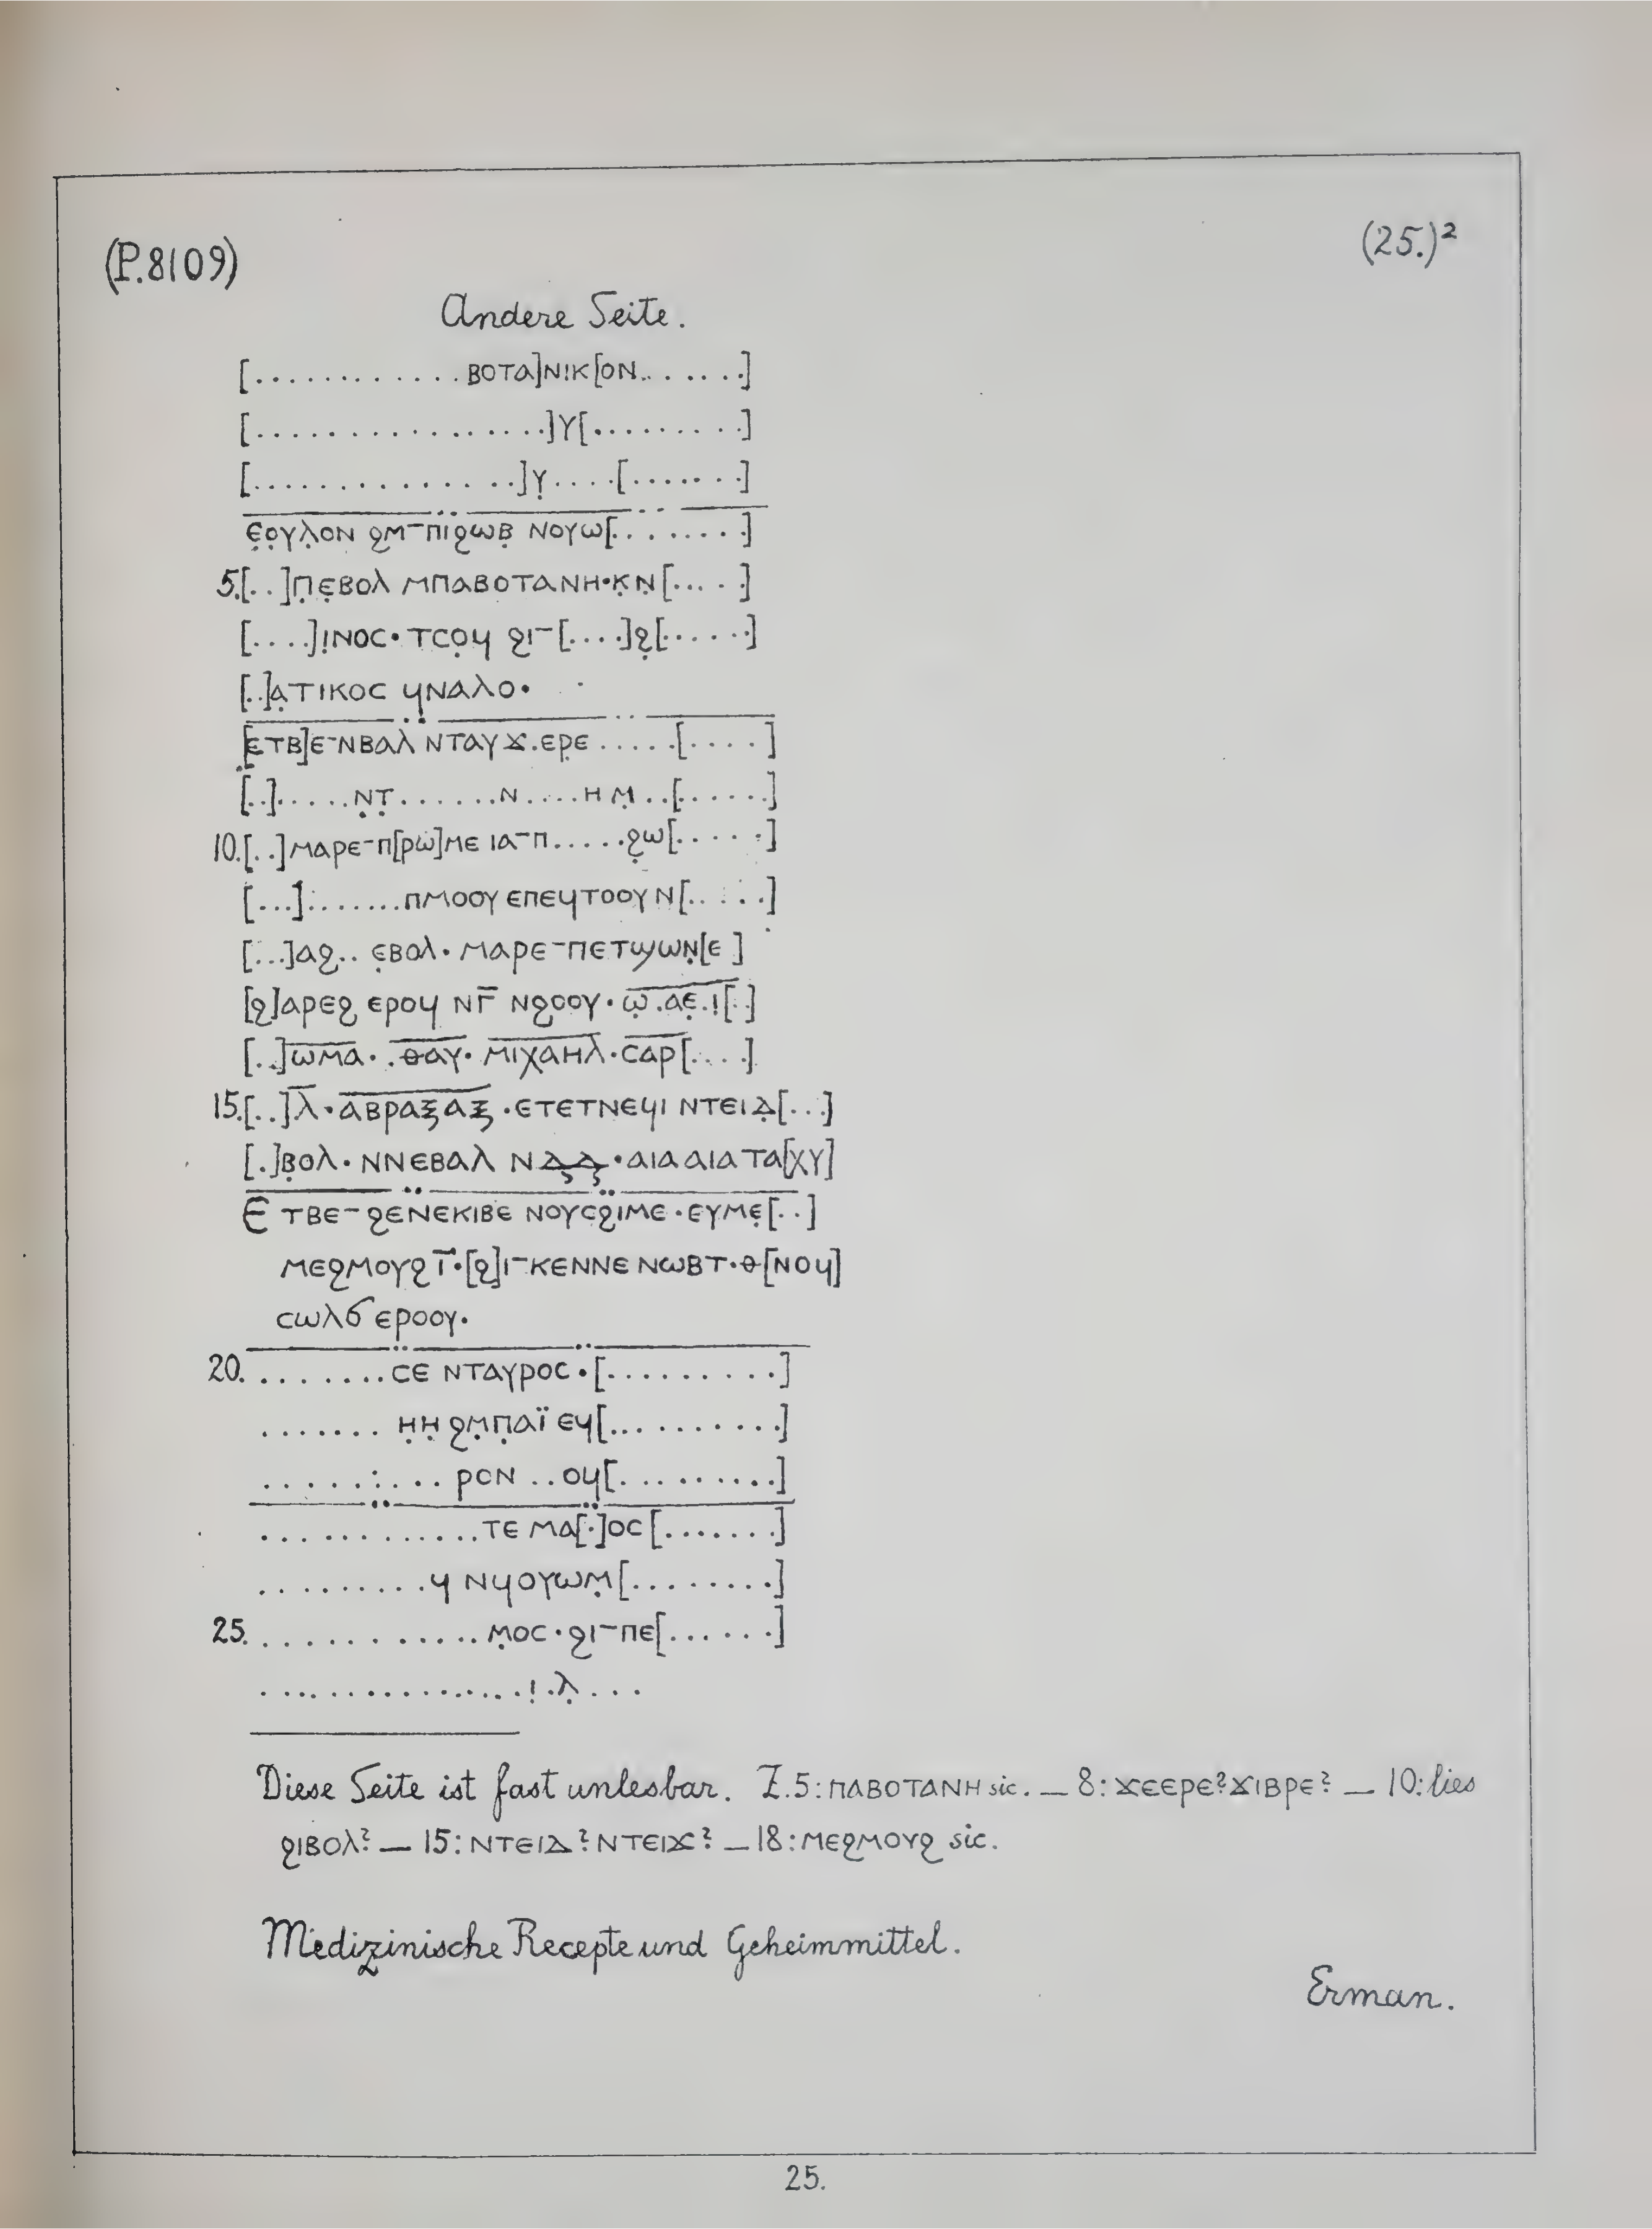 (P.8109)
(25.)²
Andere Seite.
[............ ⲃⲟⲧⲁ]ⲛⲓⲕ[ⲟⲛ.......]
[.................]ⲩ[.........]
[...............]ⲩ̣....[.......]
ⲉ̣ⲟ̣ⲩⲗ̣ⲟⲛ ϩⲙ̣-ⲡⲓϩⲱⲃ̣ ⲛⲟⲩⲱ[........]
5.[..]ⲡ̣ⲉ̣ⲃⲟⲗ ⲙⲡⲁⲃⲟⲧⲁⲛⲏ·ⲕ̣ⲛ̣[.....]
[....]ⲓ̣ⲛⲟⲥ· ⲧⲥⲟ̣ϥ ϩⲓ-[....]ϩ̣[......]
[..]ⲁ̣ⲧⲓⲕⲟⲥ ϥⲛⲁⲗⲟ·
[ⲉⲧⲃ]ⲉ-ⲛⲃⲁⲗ ⲛⲧⲁⲩϫ.ⲉⲣ̣ⲉ .....[....]
[..].....ⲛ̣ⲧ̣......ⲛ....ⲏ ⲙ̣..[......]
10.[..]ⲙⲁⲣⲉ-ⲡ[ⲣⲱ]ⲙⲉ ⲓⲁ-ⲡ.....ϩ̣ⲱ[.....]
[...]........ⲡⲙⲟⲟⲩ ⲉⲡⲉϥⲧⲟⲟⲩ ⲛ[.....]
[...]ⲁϩ.. ⲉ̣ⲃⲟⲗ· ⲙⲁⲣⲉ-ⲡⲉⲧϣⲱⲛ̣[ⲉ ]
[ϩ]ⲁⲣⲉϩ ⲉⲣⲟϥ ⲛⲅ̅ ⲛϩⲟⲟⲩ· ⲱ̣̅.ⲁ̅ⲉ̣̅.ⲓ̣̅[..]
[..]ⲱ̅ⲙ̅ⲁ̅· .ⲑ̅ⲁ̅ⲩ̅· ⲙ̅ⲓ̅ⲭ̅ⲁ̅ⲏ̅ⲗ̅·ⲥ̅ⲁ̅ⲣ̅[....]
15.[..]ⲗ̅·ⲁ̅ⲃ̅ⲣ̅ⲁ̅ⲝ̅ⲁ̅ⲝ̅·ⲉⲧⲉⲧⲛⲉϥⲓ ⲛⲧⲉⲓⲇ̣[...]
[.]ⲃ̣ⲟⲗ· ⲛⲛⲉⲃⲁⲗ ⲛ ⲇⲇ·ⲁⲓⲁ ⲁⲓⲁ ⲧⲁ[ⲭⲩ]
ⲉ ⲧⲃⲉ-ϩⲉⲛⲉⲕⲓⲃⲉ ⲛⲟⲩⲥϩⲓⲙⲉ·ⲉⲩⲙⲉ̣[..]
ⲙⲉϩⲙⲟⲩϩ ⲓ̅·[ϩ]ⲓ-ⲕⲉⲛⲛⲉ ⲛⲱⲃⲧ·ⲑ[ⲛⲟϥ]
ⲥⲱⲗϭ ⲉⲣⲟⲟⲩ·
20. .......ⲥⲉ ⲛⲧⲁⲩⲣⲟⲥ·[..........]
....... ⲏ̣ⲏ̣ ϩⲙ̣ⲡ̣ⲁⲓ̈ ⲉϥ[...........]
......... ⲣⲟⲛ ..ⲟϥ[..........]
.............ⲧⲉ ⲙⲁ[.]ⲟⲥ[.......]
..........ϥ ⲛϥⲟⲩⲱⲙ̣[.........]
25. ............ ⲙ̣ⲟⲥ·ϩⲓ-ⲡⲉ[......]
................ⲓ̣.ⲗ̣...
Diese Seite ist fast unlesbar. Z.5: ⲡⲁⲃⲟⲧⲁⲛⲏ sic. — 8: ϫⲉⲉⲣⲉ? ϫⲓⲃⲣⲉ? — 10: lies
ϩⲓⲃⲟⲗ? — 15: ⲛⲧⲉⲓⲇ? ⲛⲧⲉⲓϫ? — 18: ⲙⲉϩⲙⲟⲩϩ sic.
Medizinische Recepte und Geheimmittel.
Erman.
25.